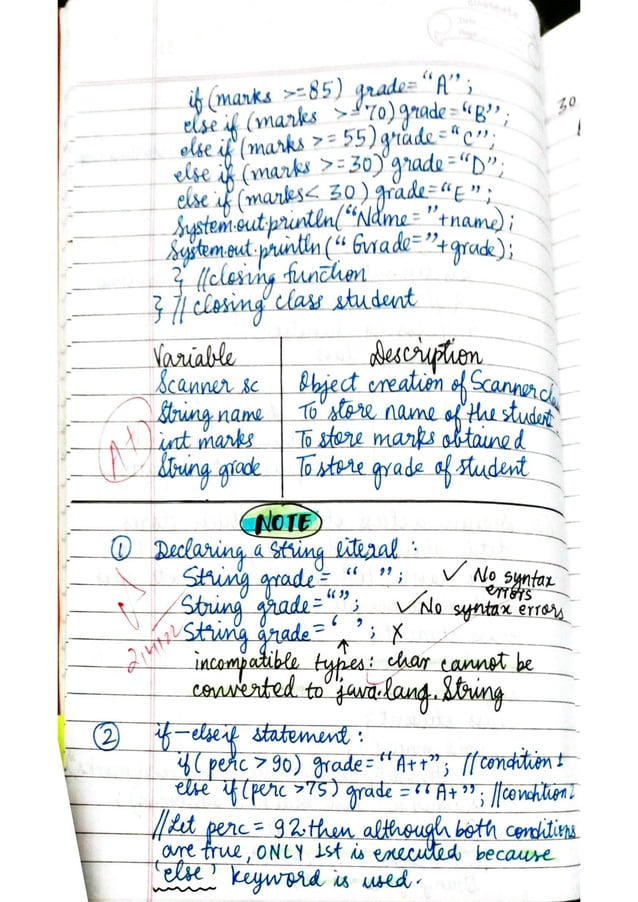 classmate
Date
Page
if (marks >=85) grade="A";
else if (marks >=70) grade="B";
else if (marks >= 55) grade="C";
else if (marks >=30) grade="D";
else if (marks< 30) grade="E";
System.out.println("Name="+name);
System.out.println("Grade="+grade);
} //closing function
} // closing class student
30
Variable Description
Scanner sc Object creation of Scanner
String name To store name of the student
int marks To store marks obtained
String grade To store grade of student
A+
NOTE
① Declaring a string literal :
String grade = " "; ✓ No syntax errors
String grade=""; ✓ No syntax errors
String grade=' '; X
↑
incompatible types: char cannot be
converted to java.lang.String
② if-else if statement :
if( perc > 90) grade="A++"; //condition 1
else if (perc >75) grade = "A+"; //condition 2
//Let perc = 92. then although both conditions
are true, ONLY 1st is executed because
'else' keyword is used.